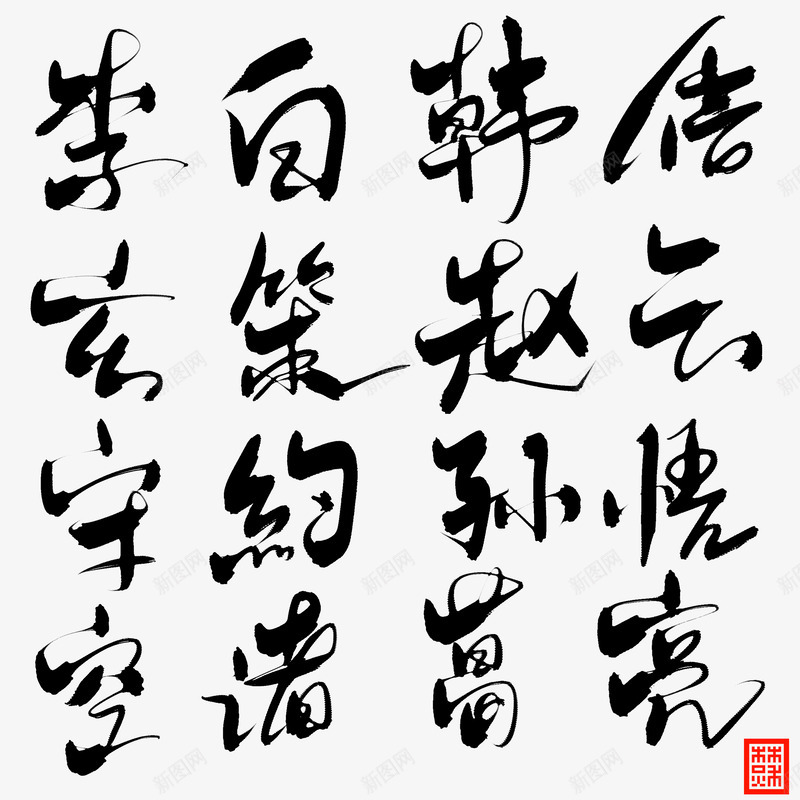 李白韩信
玄策赵云
守約孙悟
空诸葛亮
新图网